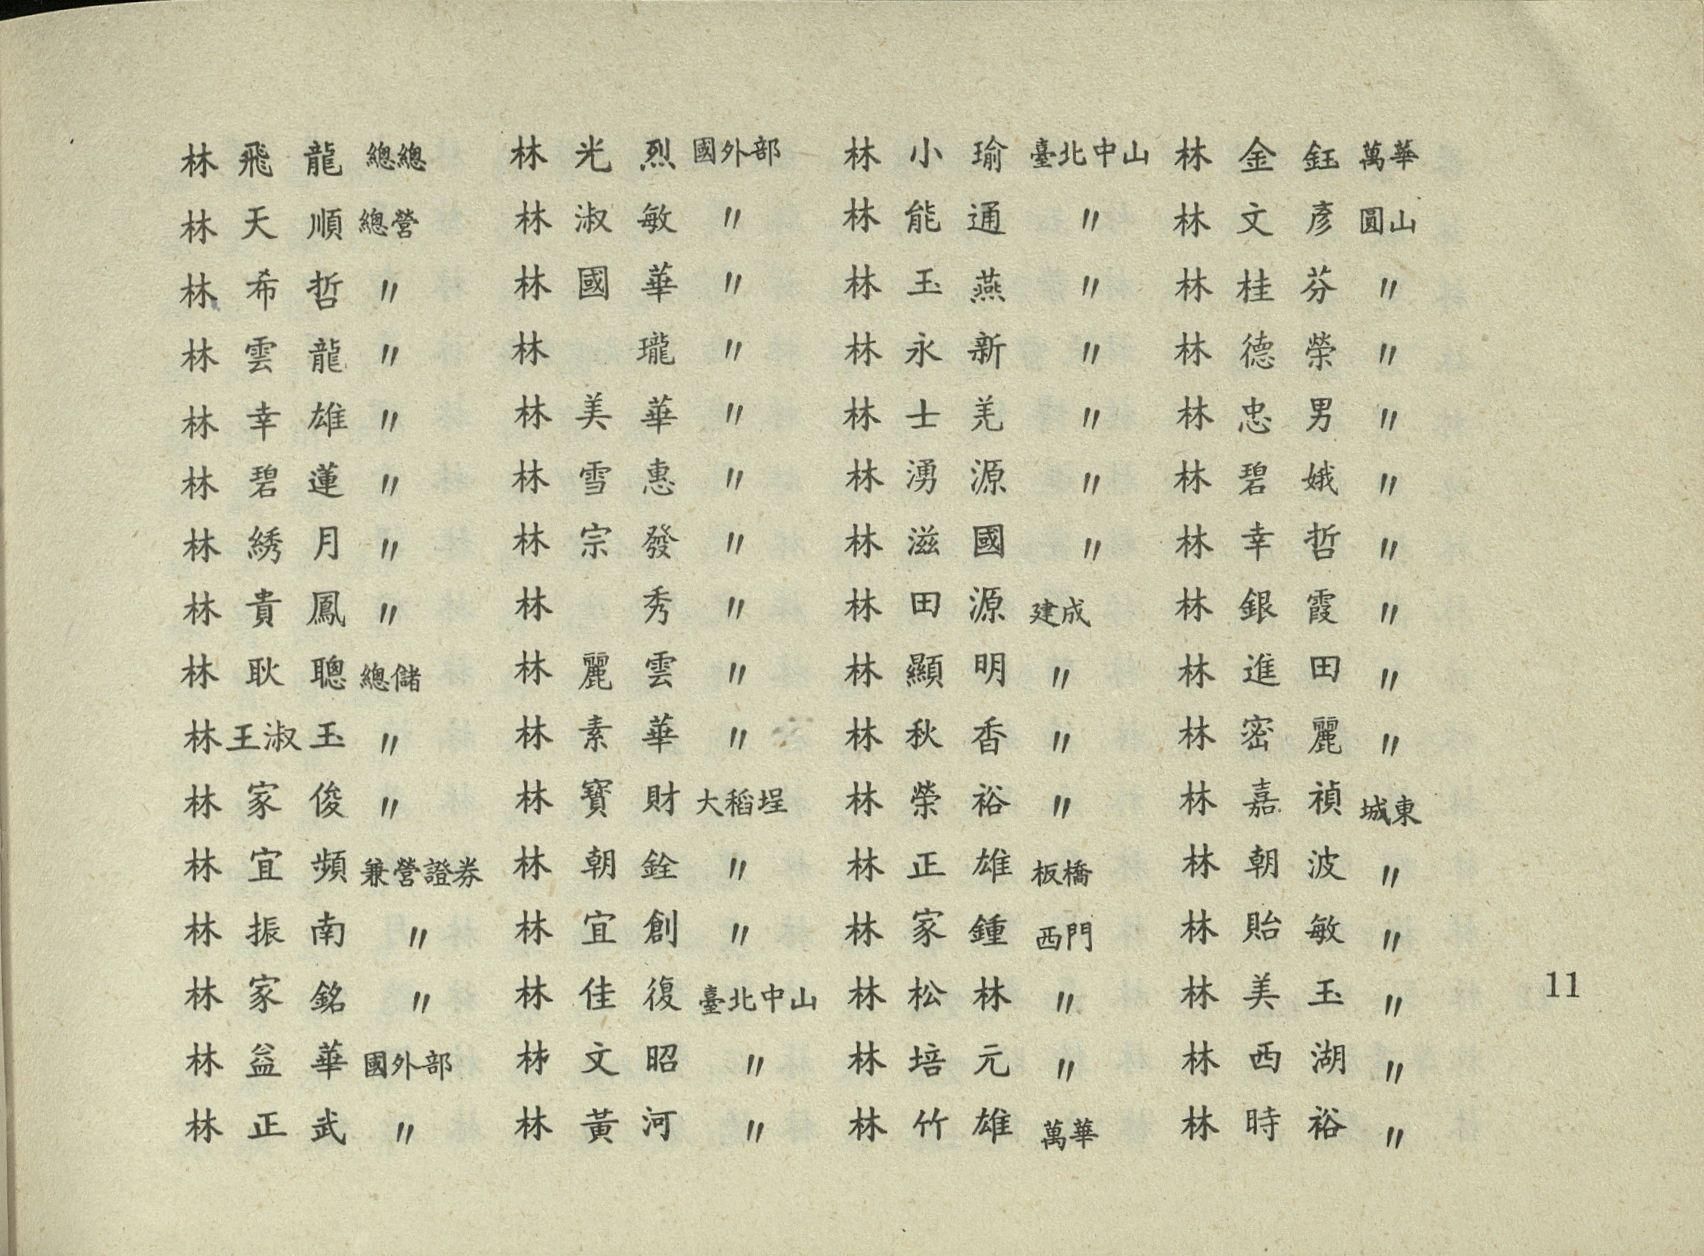 林飛龍 總總 林光烈 國外部 林小瑜 臺北中山 林金鈺 萬華
林天順 總營 林淑敏 〃 林能通 〃 林文彥 圓山
林希哲 〃 林國華 〃 林玉燕 〃 林桂芬 〃
林雲龍 〃 林瓏 〃 林永新 〃 林德榮 〃
林幸雄 〃 林美華 〃 林士羌 〃 林忠男 〃
林碧蓮 〃 林雪惠 〃 林湧源 〃 林碧娥 〃
林綉月 〃 林宗發 〃 林滋國 〃 林幸哲 〃
林貴鳳 〃 林秀 〃 林田源 建成 林銀霞 〃
林耿聰 總儲 林麗雲 〃 林顯明 〃 林進田 〃
林王淑玉 〃 林素華 〃 林秋香 〃 林密麗 〃
林家俊 〃 林寶財 大稻埕 林榮裕 〃 林嘉禎 城東
林宜頻 兼營證券 林朝銓 〃 林正雄 板橋 林朝波 〃
林振南 〃 林宜創 〃 林家鍾 西門 林貽敏 〃
林家銘 〃 林佳復 臺北中山 林松林 〃 林美玉 〃
林益華 國外部 林文昭 〃 林培元 〃 林西湖 〃
林正武 〃 林黃河 〃 林竹雄 萬華 林時裕 〃
11